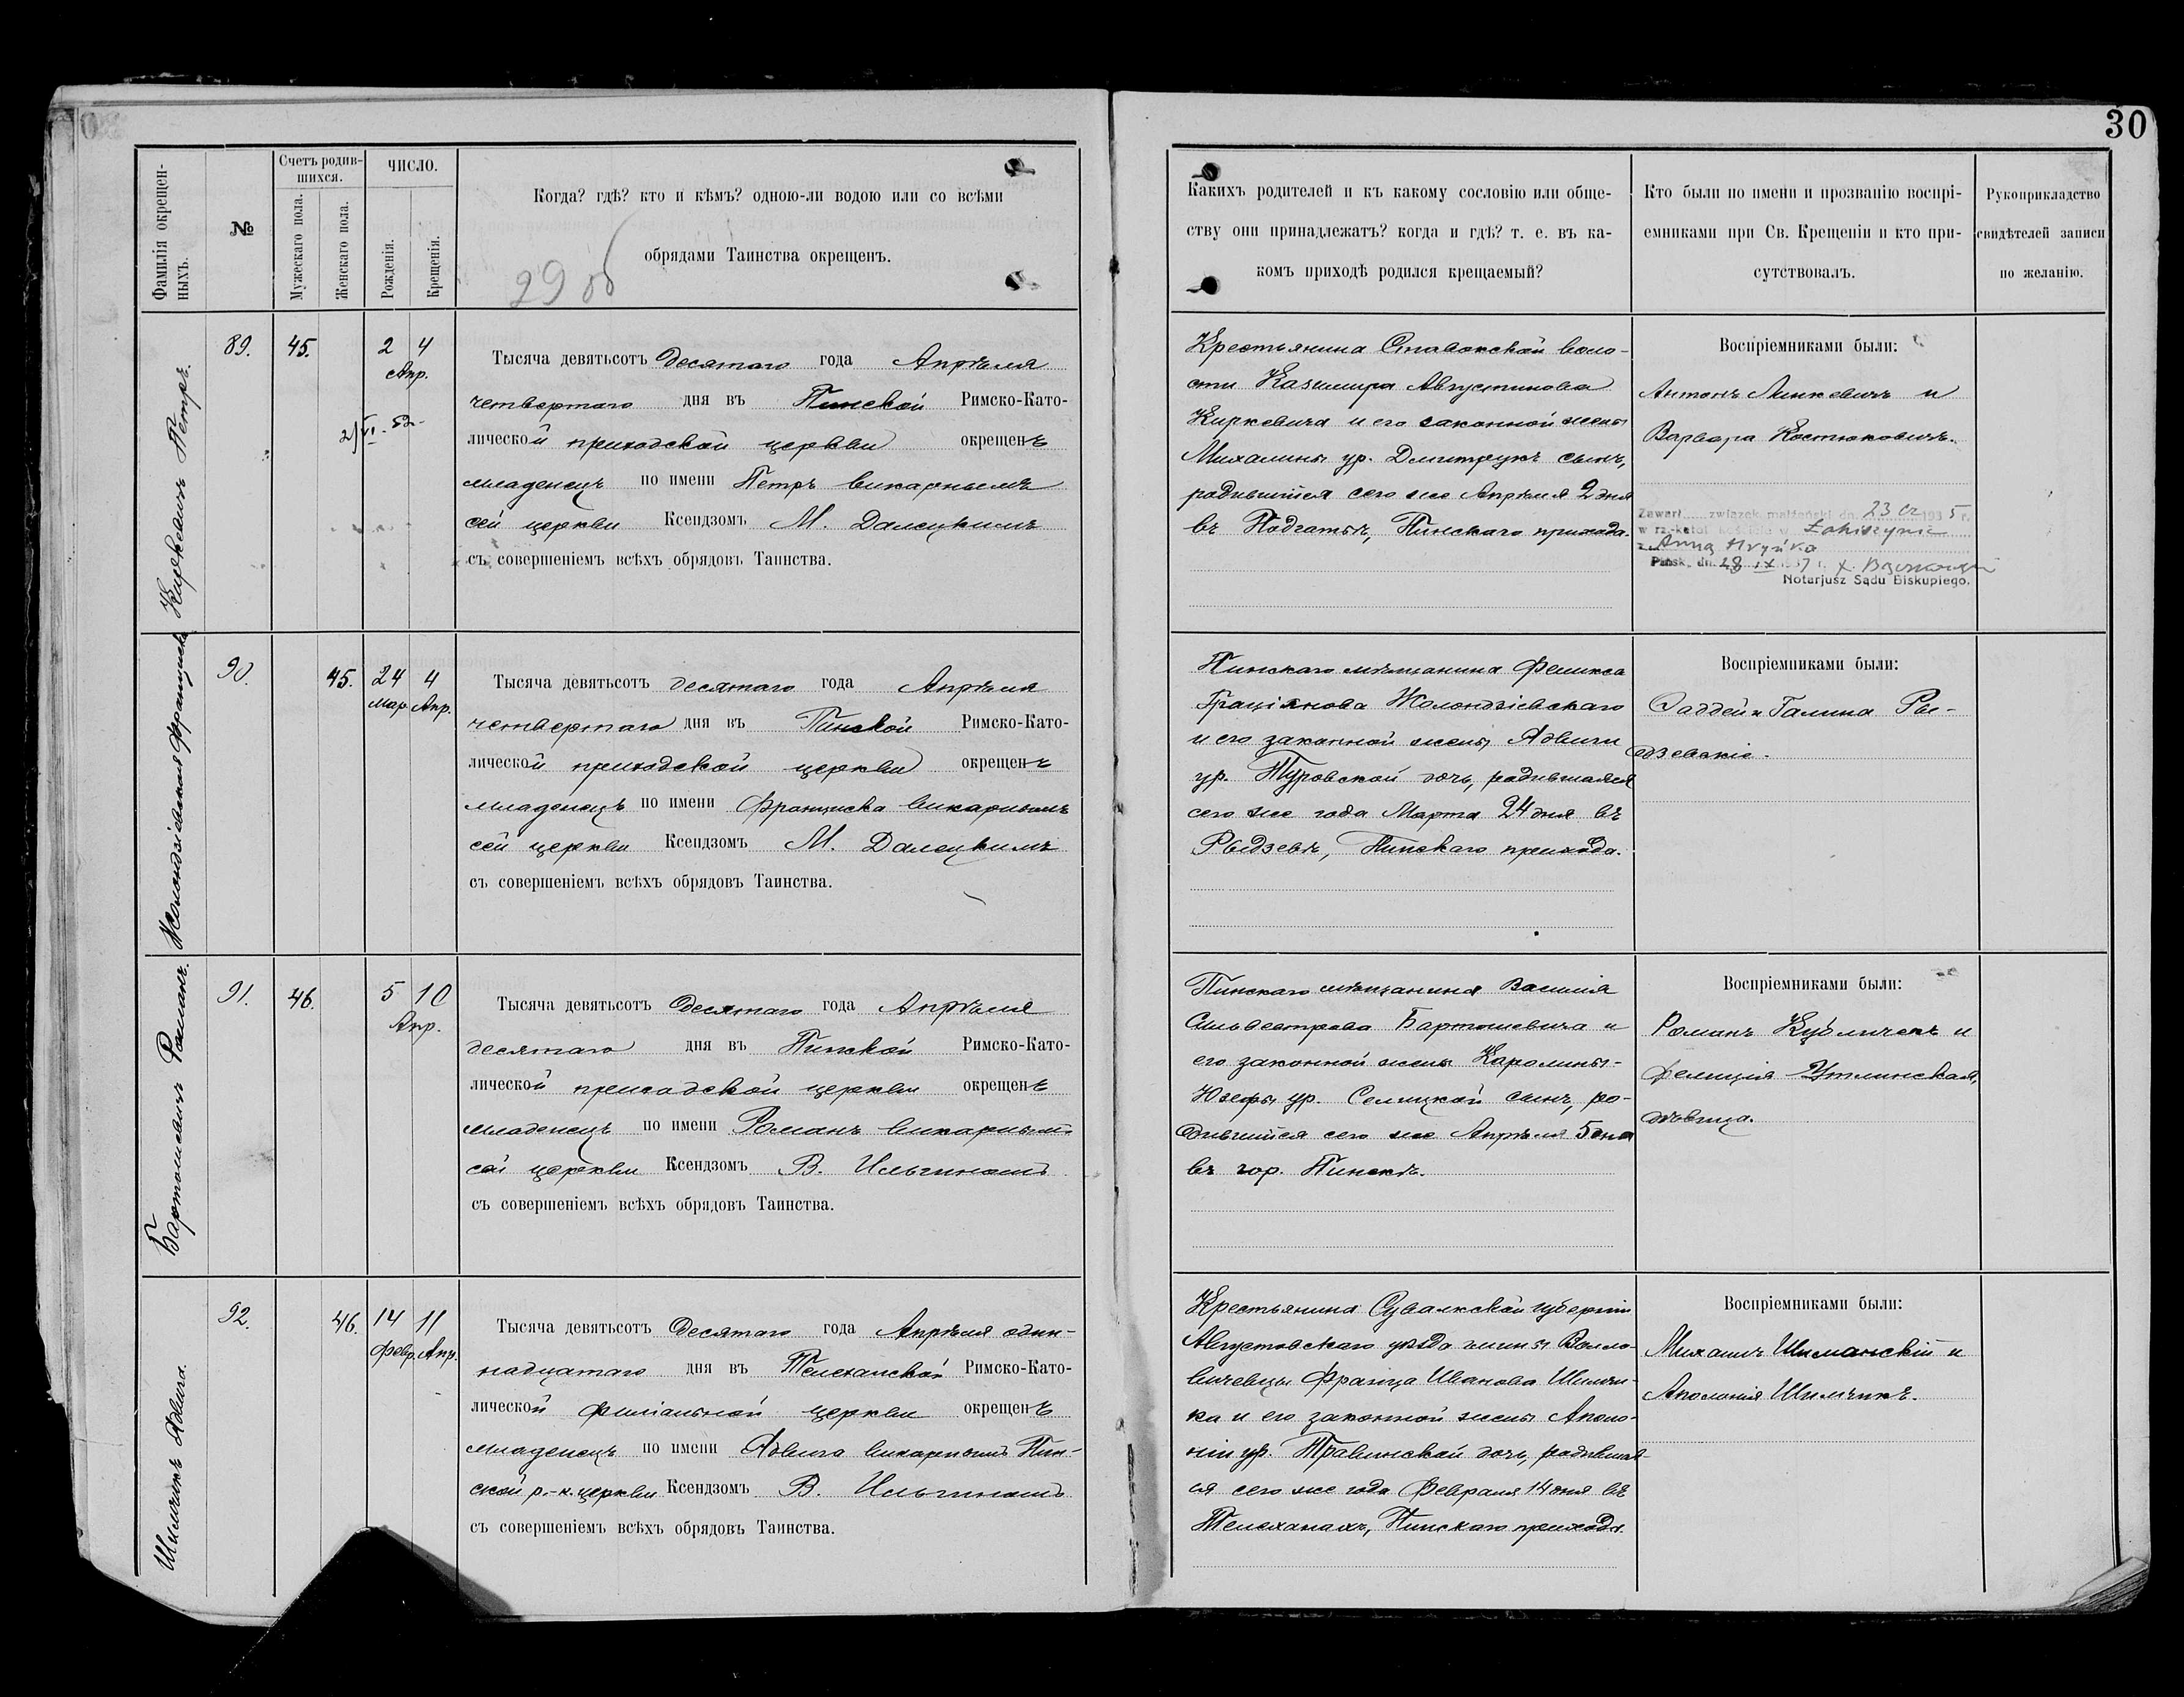 30
Фамилія окрещен-
ныхъ.
№
Счетъ родив-
шихся.
Мужескаго пола.
Женскаго пола.
ЧИСЛО.
Рожденія.
Крещенія.
Когда? гдѣ? кто и кѣмъ? одною-ли водою или со всѣми
обрядами Таинства окрещенъ.
29 об
Какихъ родителей и къ какому сословію или обще-
ству они принадлежатъ? когда и гдѣ? т. е. въ ка-
комъ приходѣ родился крещаемый?
Кто были по имени и прозванію воспрі-
емниками при Св. Крещеніи и кто при-
сутствовалъ.
Рукоприкладство
свидѣтелей записи
по желанію.
Киркевичъ Петръ.
89.
45.
2 4
Апр.
Тысяча девятьсотъ десятаго года Апрѣля
четвертаго дня въ Пинской Римско-Като-
лической приходской церкви окрещенъ
младенецъ по имени Петръ викарнымъ
сей церкви Ксендзомъ М. Далецкимъ
съ совершеніемъ всѣхъ обрядовъ Таинства.
Крестьянина Ставокской воло-
сти Казимира Августинова
Киркевича и его законной жены
Михалины ур. Дмитрукъ сынъ,
родившійся сего же Апрѣля 2 дня
въ Подгатьѣ, Пинскаго прихода.
Воспріемниками были:
Антонъ Линкевичъ и
Варвара Костюковичъ.
Zawarł związek małżeński dn. 23 1935 r.
w rz.-katol. kościele w Łohiszynie
z Anną Hryńko
Pińsk, dn. 28 IX 1937 r.
Notarjusz Sądu Biskupiego.
Жолондзіевская Франциска
90.
45.
24 4
Мар. Апр.
Тысяча девятьсотъ десятаго года Апрѣля
четвертаго дня въ Пинской Римско-Като-
лической приходской церкви окрещенъ
младенецъ по имени Франциска викарнымъ
сей церкви Ксендзомъ М. Далецкимъ
съ совершеніемъ всѣхъ обрядовъ Таинства.
Пинскаго мѣщанина Феликса
Граціянова Жолондзіевскаго
и его законной жены Ядвиги
ур. Туровской дочь, родившаяся
сего же года Марта 24 дня въ
Рыдзевѣ, Пинскаго прихода.
Воспріемниками были:
Фаддей и Галина Ры-
дзевскіе.
Бартошевичъ Романъ.
91.
46.
5 10
Апр.
Тысяча девятьсотъ десятаго года Апрѣля
десятаго дня въ Пинской Римско-Като-
лической приходской церкви окрещенъ
младенецъ по имени Романъ викарнымъ
сей церкви Ксендзомъ В. Ильгиномъ
съ совершеніемъ всѣхъ обрядовъ Таинства.
Пинскаго мѣщанина Василія
Сильвестрова Бартошевича и
его законной жены Каролины-
Юзефы ур. Селицкой сынъ, ро-
дившійся сего же Апрѣля 5 дня
въ гор. Пинскѣ.
Воспріемниками были:
Романъ Кубличекъ и
Фелиція Утлинская,
дѣвица.
Шимчикъ Ядвига.
92.
46.
14 11
Февр. Апр.
Тысяча девятьсотъ десятаго года Апрѣля один-
надцатаго дня въ Телеханской Римско-Като-
лической филіальной церкви окрещенъ
младенецъ по имени Ядвига викарнымъ Пин-
ской р.-к. церкви Ксендзомъ В. Ильгиномъ
съ совершеніемъ всѣхъ обрядовъ Таинства.
Крестьянина Сувалкской губерніи
Августовскаго уѣзда гмины Волло-
вичевцы Франца Иванова Шимчи-
ка и его законной жены Аполо-
ніи ур. Травинской дочь, родившая-
ся сего же года Февраля 14 дня въ
Телеханахъ, Пинскаго прихода.
Воспріемниками были:
Михаилъ Шиманскій и
Аполонія Шимчикъ.